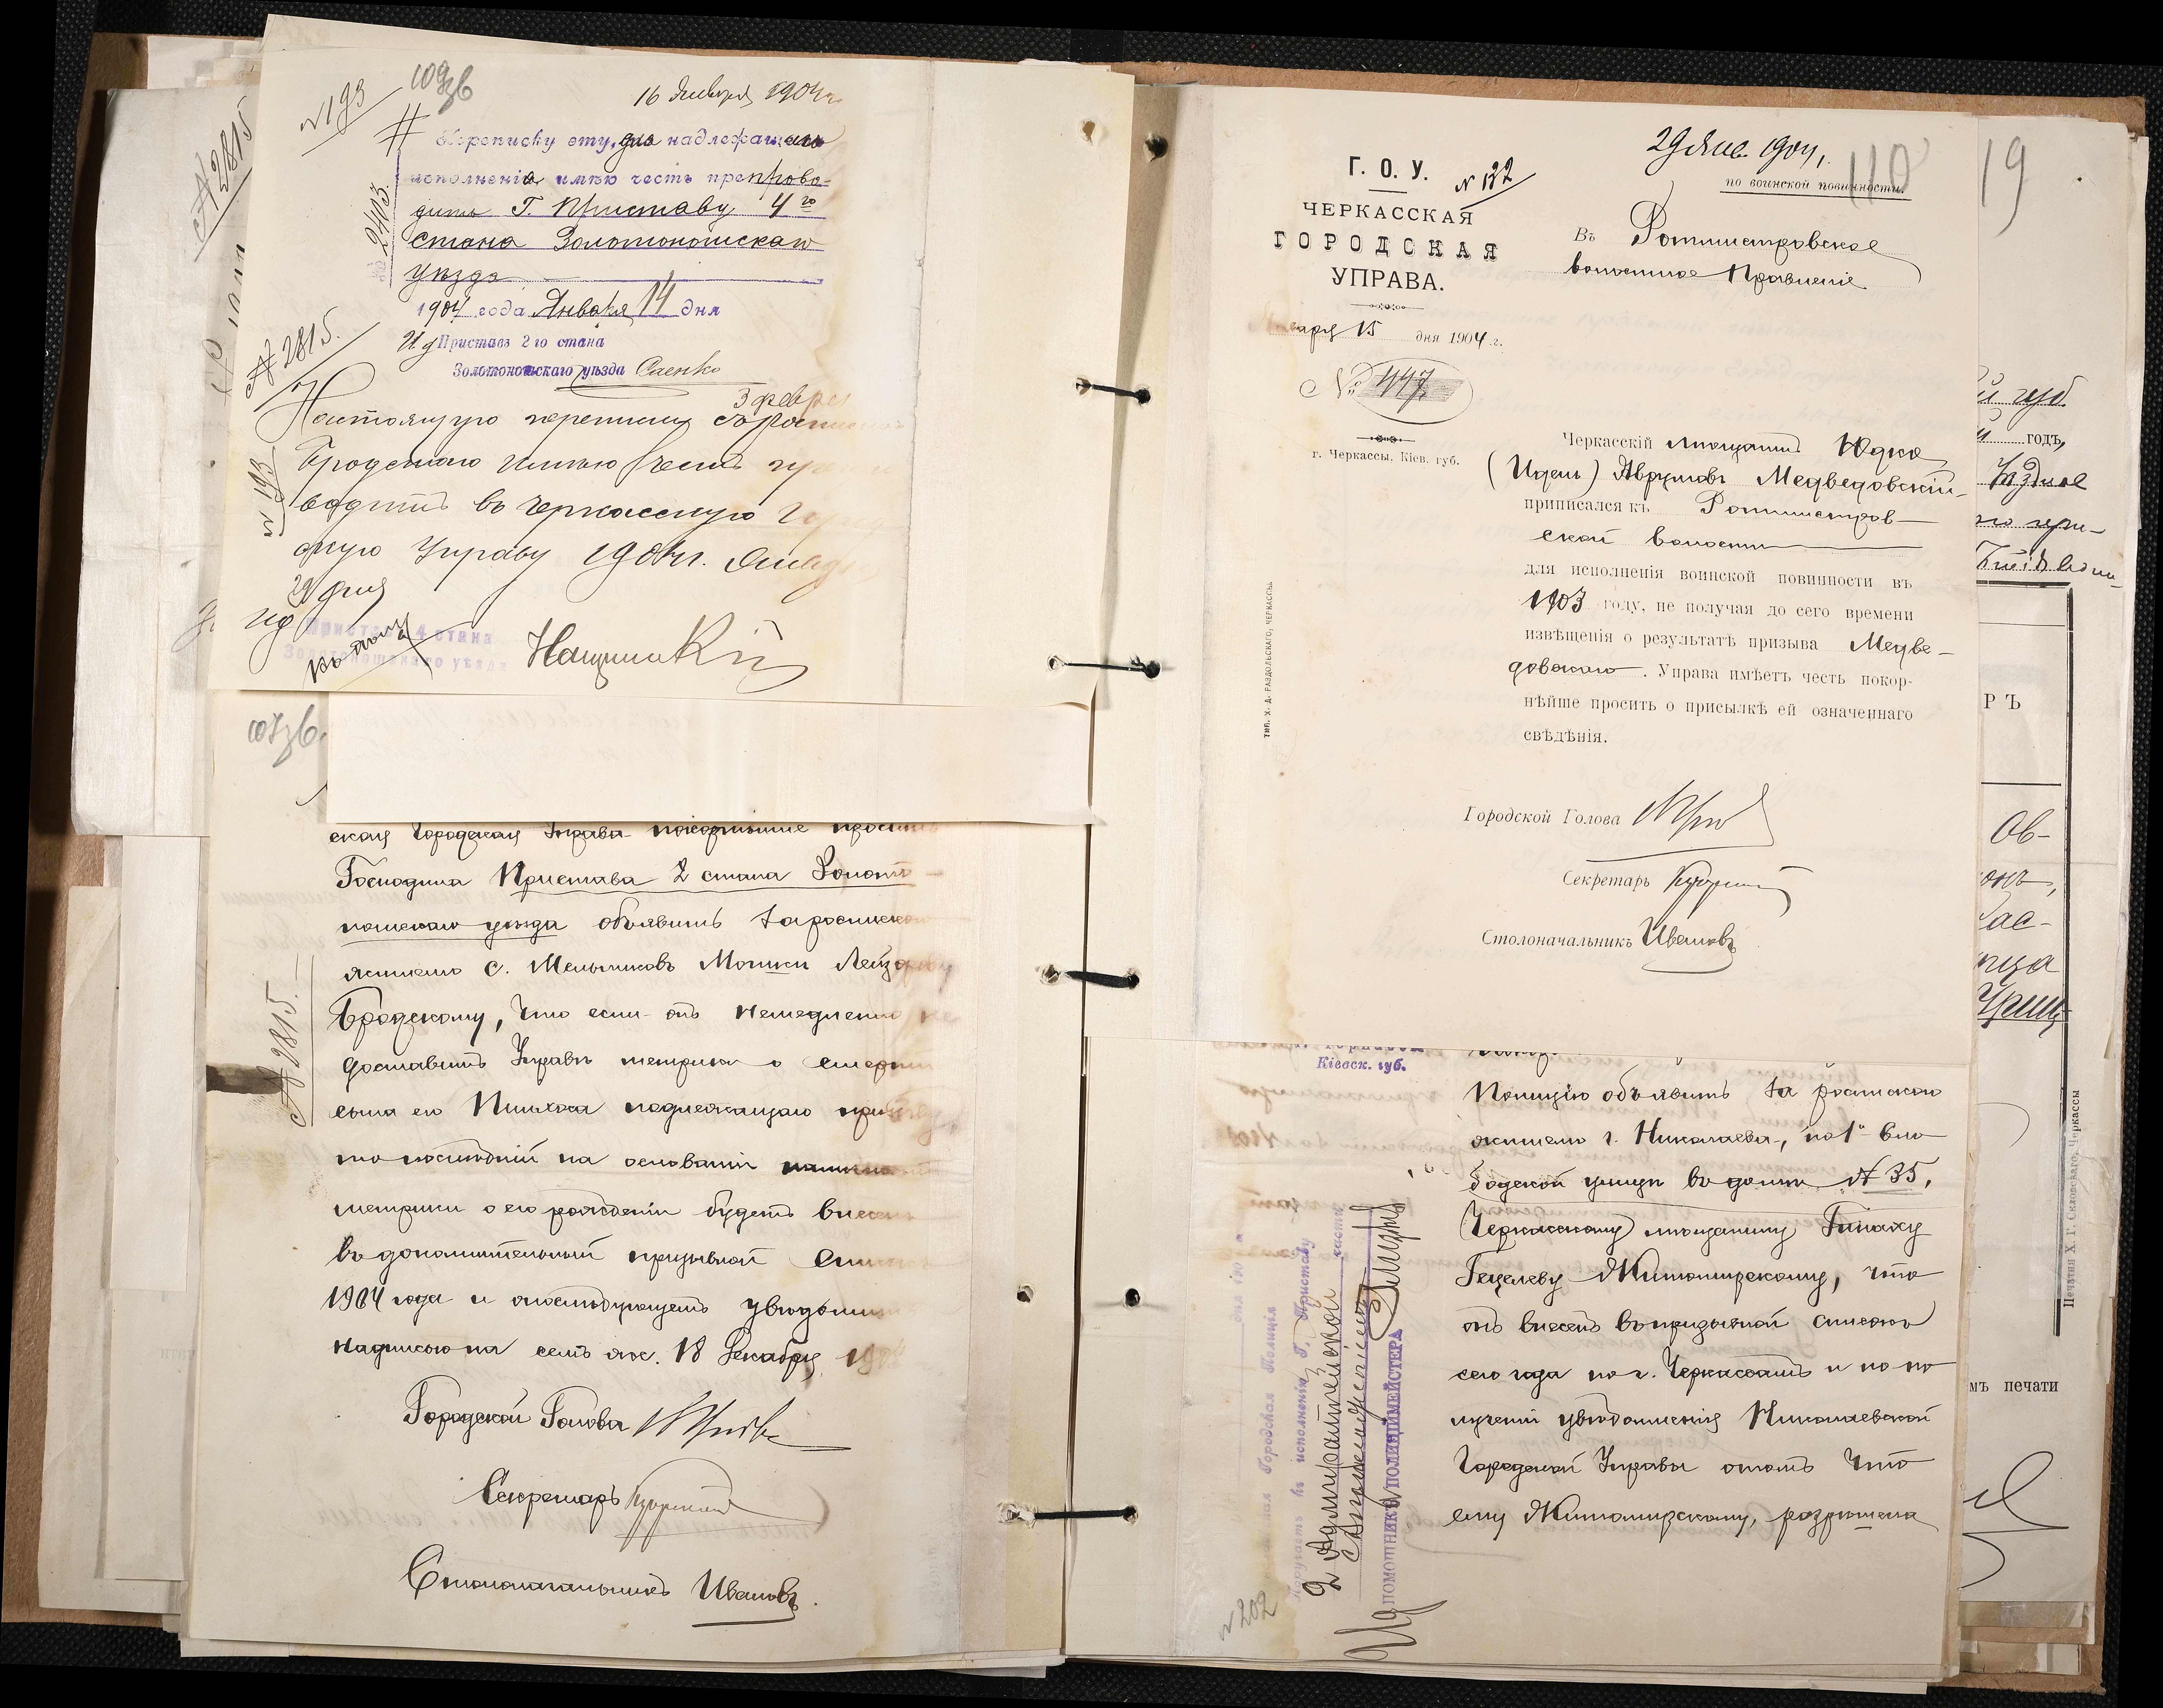 № 193
109зв
16 Января 1904 г.
№ 2403.
Переписку эту, для надлежащаго
исполненія имѣю честь препрово-
дить Г. Приставу 4 го
стана Золотоношскаго
уѣзда
1904 года Января 14 дня
И.д Приставъ 2 го стана
Золотоношскаго уѣзда Саенко
№ 2815.
3 февр
Настоящую переписку съ роспиской
Бродскаго имѣю честь
водить въ Черкасскую
скую Управу 1904 г. Янв
29 дня
№ 193
ИД Приставъ 4 стана
Золотоношскаго уѣзда
къ дѣлу
107зв.
ская Городская Управа покорнѣйше проситъ
Господина Пристава 2 стана Золото-
ношскаго уѣзда объявить за роспискою
жителю с. Мельниковъ Мошки Лейзорову
Бродскому, что если онъ немедленно не
доставитъ Управѣ метрики о смерти
сына его Пинхаса подлежащаго призыву,
то послѣдній на основаніи
метрики о его рожденіи будетъ внесенъ
въ дополнительный призывной списокъ
1904 года и о послѣдующемъ увѣдомить
надписью на семъ же. 18 Декабря 190
№ 2815.
Городской Голова
Секретарь
Столоначальникъ Ивановъ.
№ 2815
29 Янв. 1904 г.
110
19
Г. О. У.
№ 182
ЧЕРКАССКАЯ
ГОРОДСКАЯ
УПРАВА.
Января 15 дня 1904 г.
№ 447
г. Черкассы, Кіев. губ.
по воинской повинности.
Въ Ротмистровское
волостное Правленіе
Черкасскій мѣщанинъ Юдко
(Идель) Аврумовъ Медведовскій
приписался къ Ротмистров-
ской волости
для исполненія воинской повинности въ
1903 году, не получая до сего времени
извѣщенія о результатѣ призыва Медве-
довскаго. Управа имѣетъ честь покор-
нѣйше просить о присылкѣ ей означеннаго
свѣдѣнія.
Городской Голова
Секретарь
Столоначальникъ Ивановъ
ТИП. Х. Д. РАЗДОЛЬСКАГО, ЧЕРКАССЫ.
Кіевск. губ.
Полицію объявить за роспискою
жителю г. Николаева, по 1й Сло-
бодской улицѣ въ домѣ № 35,
Черкасскому мѣщанину Гилаху
Гецелеву Житомирскому, что
онъ внесенъ въ призывной списокъ
сего года по г. Черкассамъ и по по-
лученіи увѣдомленія Николаевской
Городской Управы о томъ что
ему Житомирскому, разрѣшена
Городская Полиція
къ исполненію Г. Приставу
2 Адмиралтейской части
Ид ПОМОЩНИКА ПОЛИЦІЙМЕЙСТЕРА
№ 202
губ.
годъ,
РЪ
Ов-
мъ печати
Печатня Х. Г. Сиволскаго, Черкассы